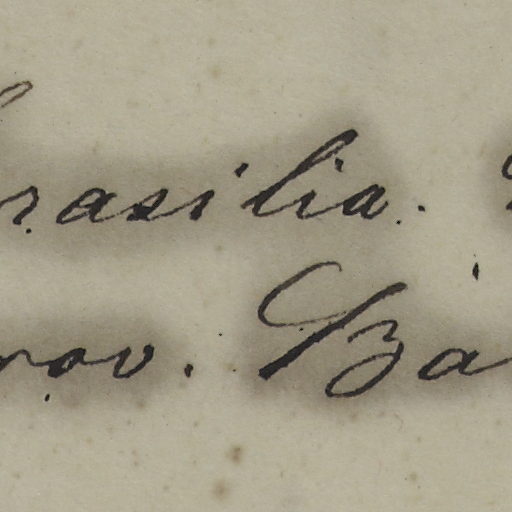 rasilia.
rov. Ba